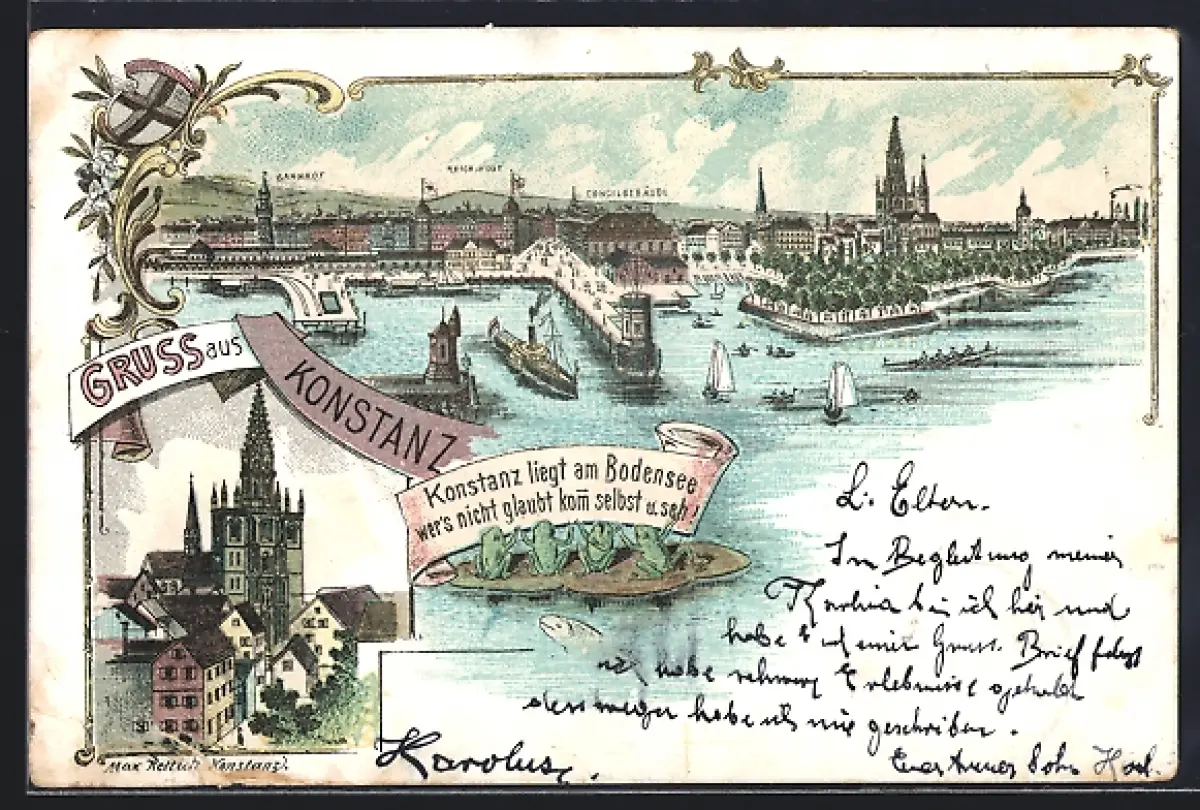 BAHNHOF
REICHSPOST
CONCILGEBÄUDE
GRUSS aus
KONSTANZ
Konstanz liegt am Bodensee
wer's nicht glaubt kom̄ selbst u. seh!
L. Eltern.
In Begleitung meiner
bin ich hier und
habe einen Gruss. Brief folgt
ich habe schwere Erlebnisse gehabt
deswegen habe ich nie geschrieben.
Euer Sohn
Karolus.
Max Rettich Konstanz.